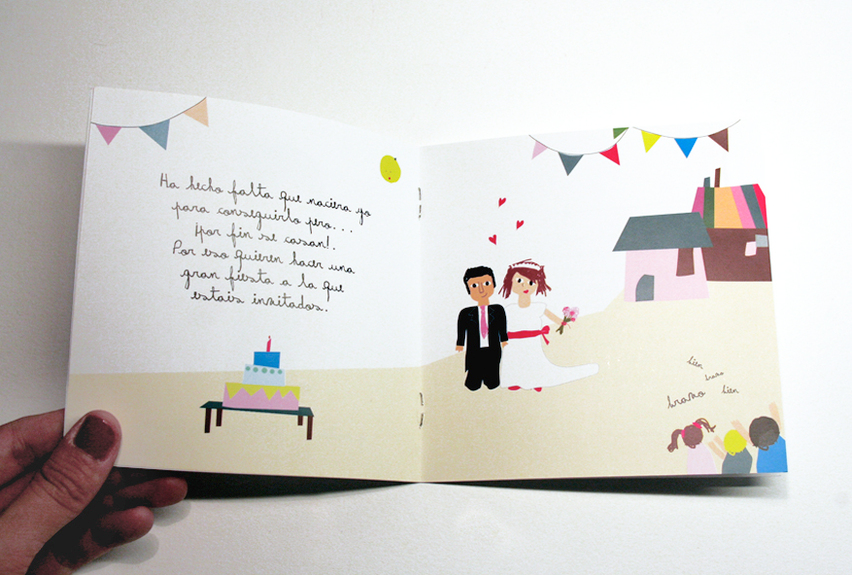 Ha hecho falta que naciera yo
para conseguirlo pero...
¡por fin se casan!.
Por eso quieren hacer una
gran fiesta a la que
estais invitados.
bien
bravo
bravo bien